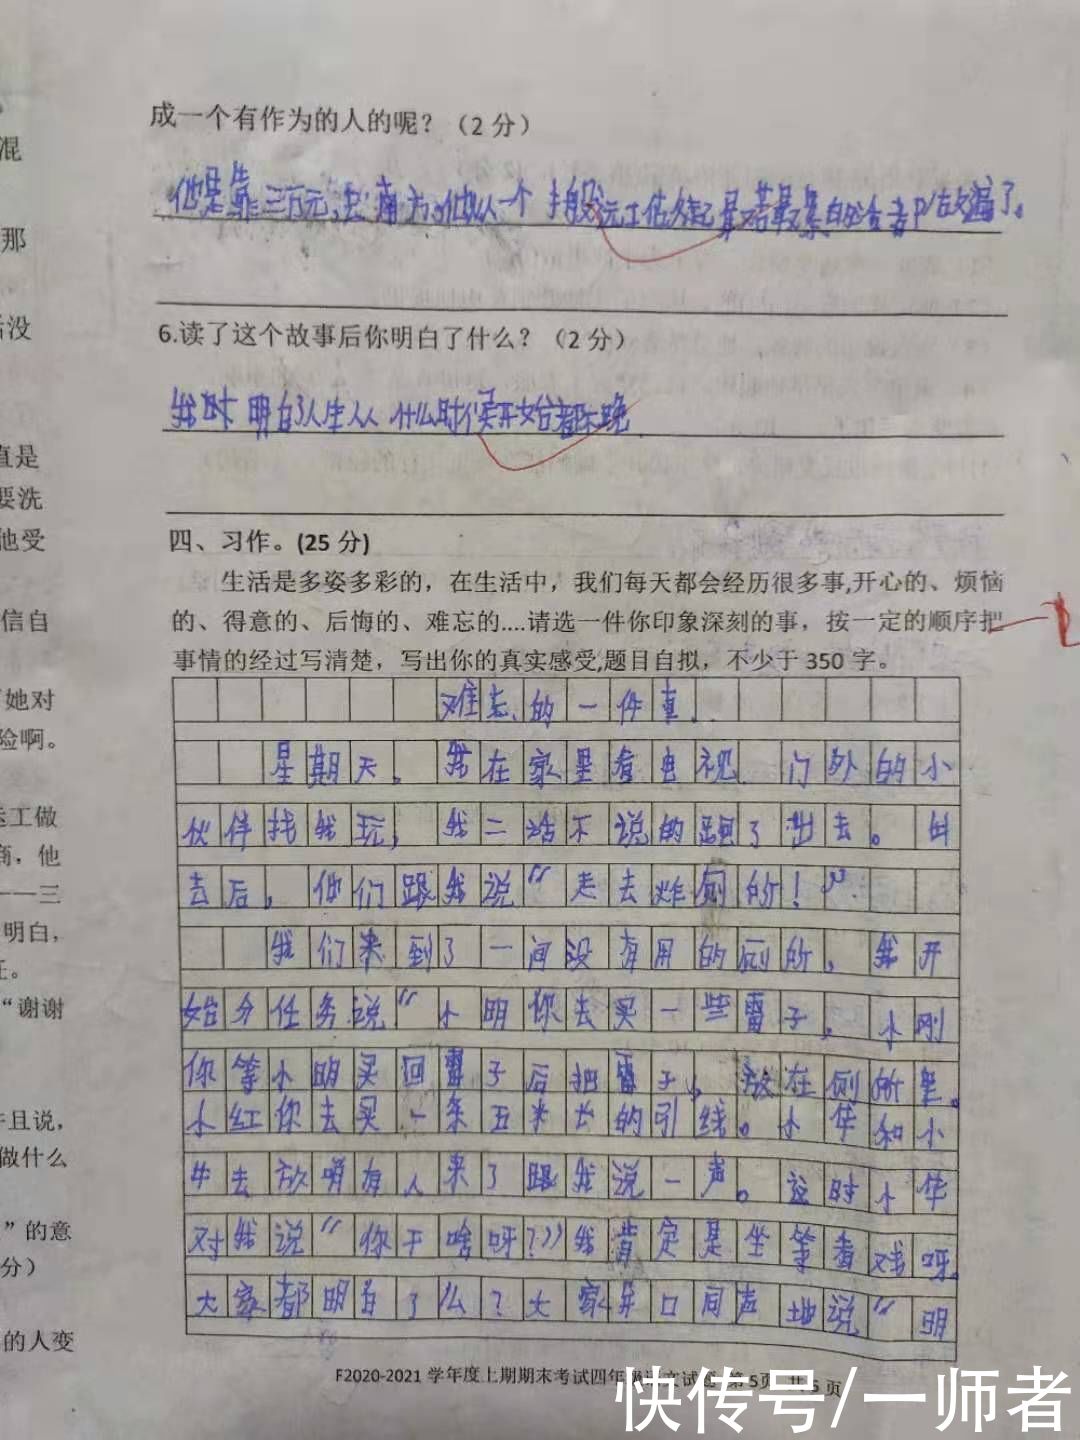 混
那
后没
直是
要洗
他受
信自
她对
险啊。
运工做
商，他
——三
明白，
“谢谢
并且说，
做什么
”的意
分）
的人变
成一个有作为的人的呢？（2分）
他是靠三百元
6.读了这个故事后你明白了什么？（2分）
我明白了人生从什么时候开始都不晚
四、习作。(25分)
生活是多姿多彩的，在生活中，我们每天都会经历很多事,开心的、烦恼
的、得意的、后悔的、难忘的....请选一件你印象深刻的事，按一定的顺序把
事情的经过写清楚，写出你的真实感受,题目自拟，不少于350字。
难忘的一件事
星期天。我在家里看电视.门外的小
伙伴找我玩，我二话不说的跑了出去。出
去后，他们跟我说“走去炸厕所！”
我们来到了一间没有用的厕所，我开
始分任务说“小明你去买一些雷子，小刚
你等小明买回雷子后把雷子，放在厕所里。
小红你去买一条五米长的引线。小华和小
牛去放哨有人来了跟我说一声。这时小华
对我说“你干啥呀？”我肯定是坐等看戏呀。
大家都明白了么？大家异口同声地说“明
F2020-2021学年度上期期末考试四年级语文试卷 第5页 共6页
快传号/一师者